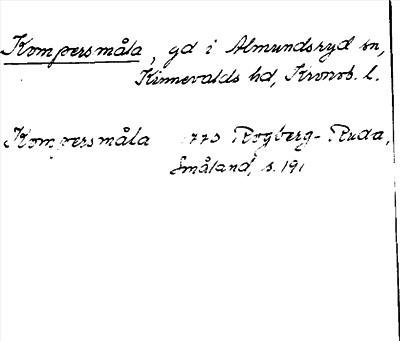 Kompersmåla, gd i Almundsryd sn,
Kinnevalds hd, Kronob. l.
Kompersmåla 1773 Rogberg-Ruda,
Småland, s. 191